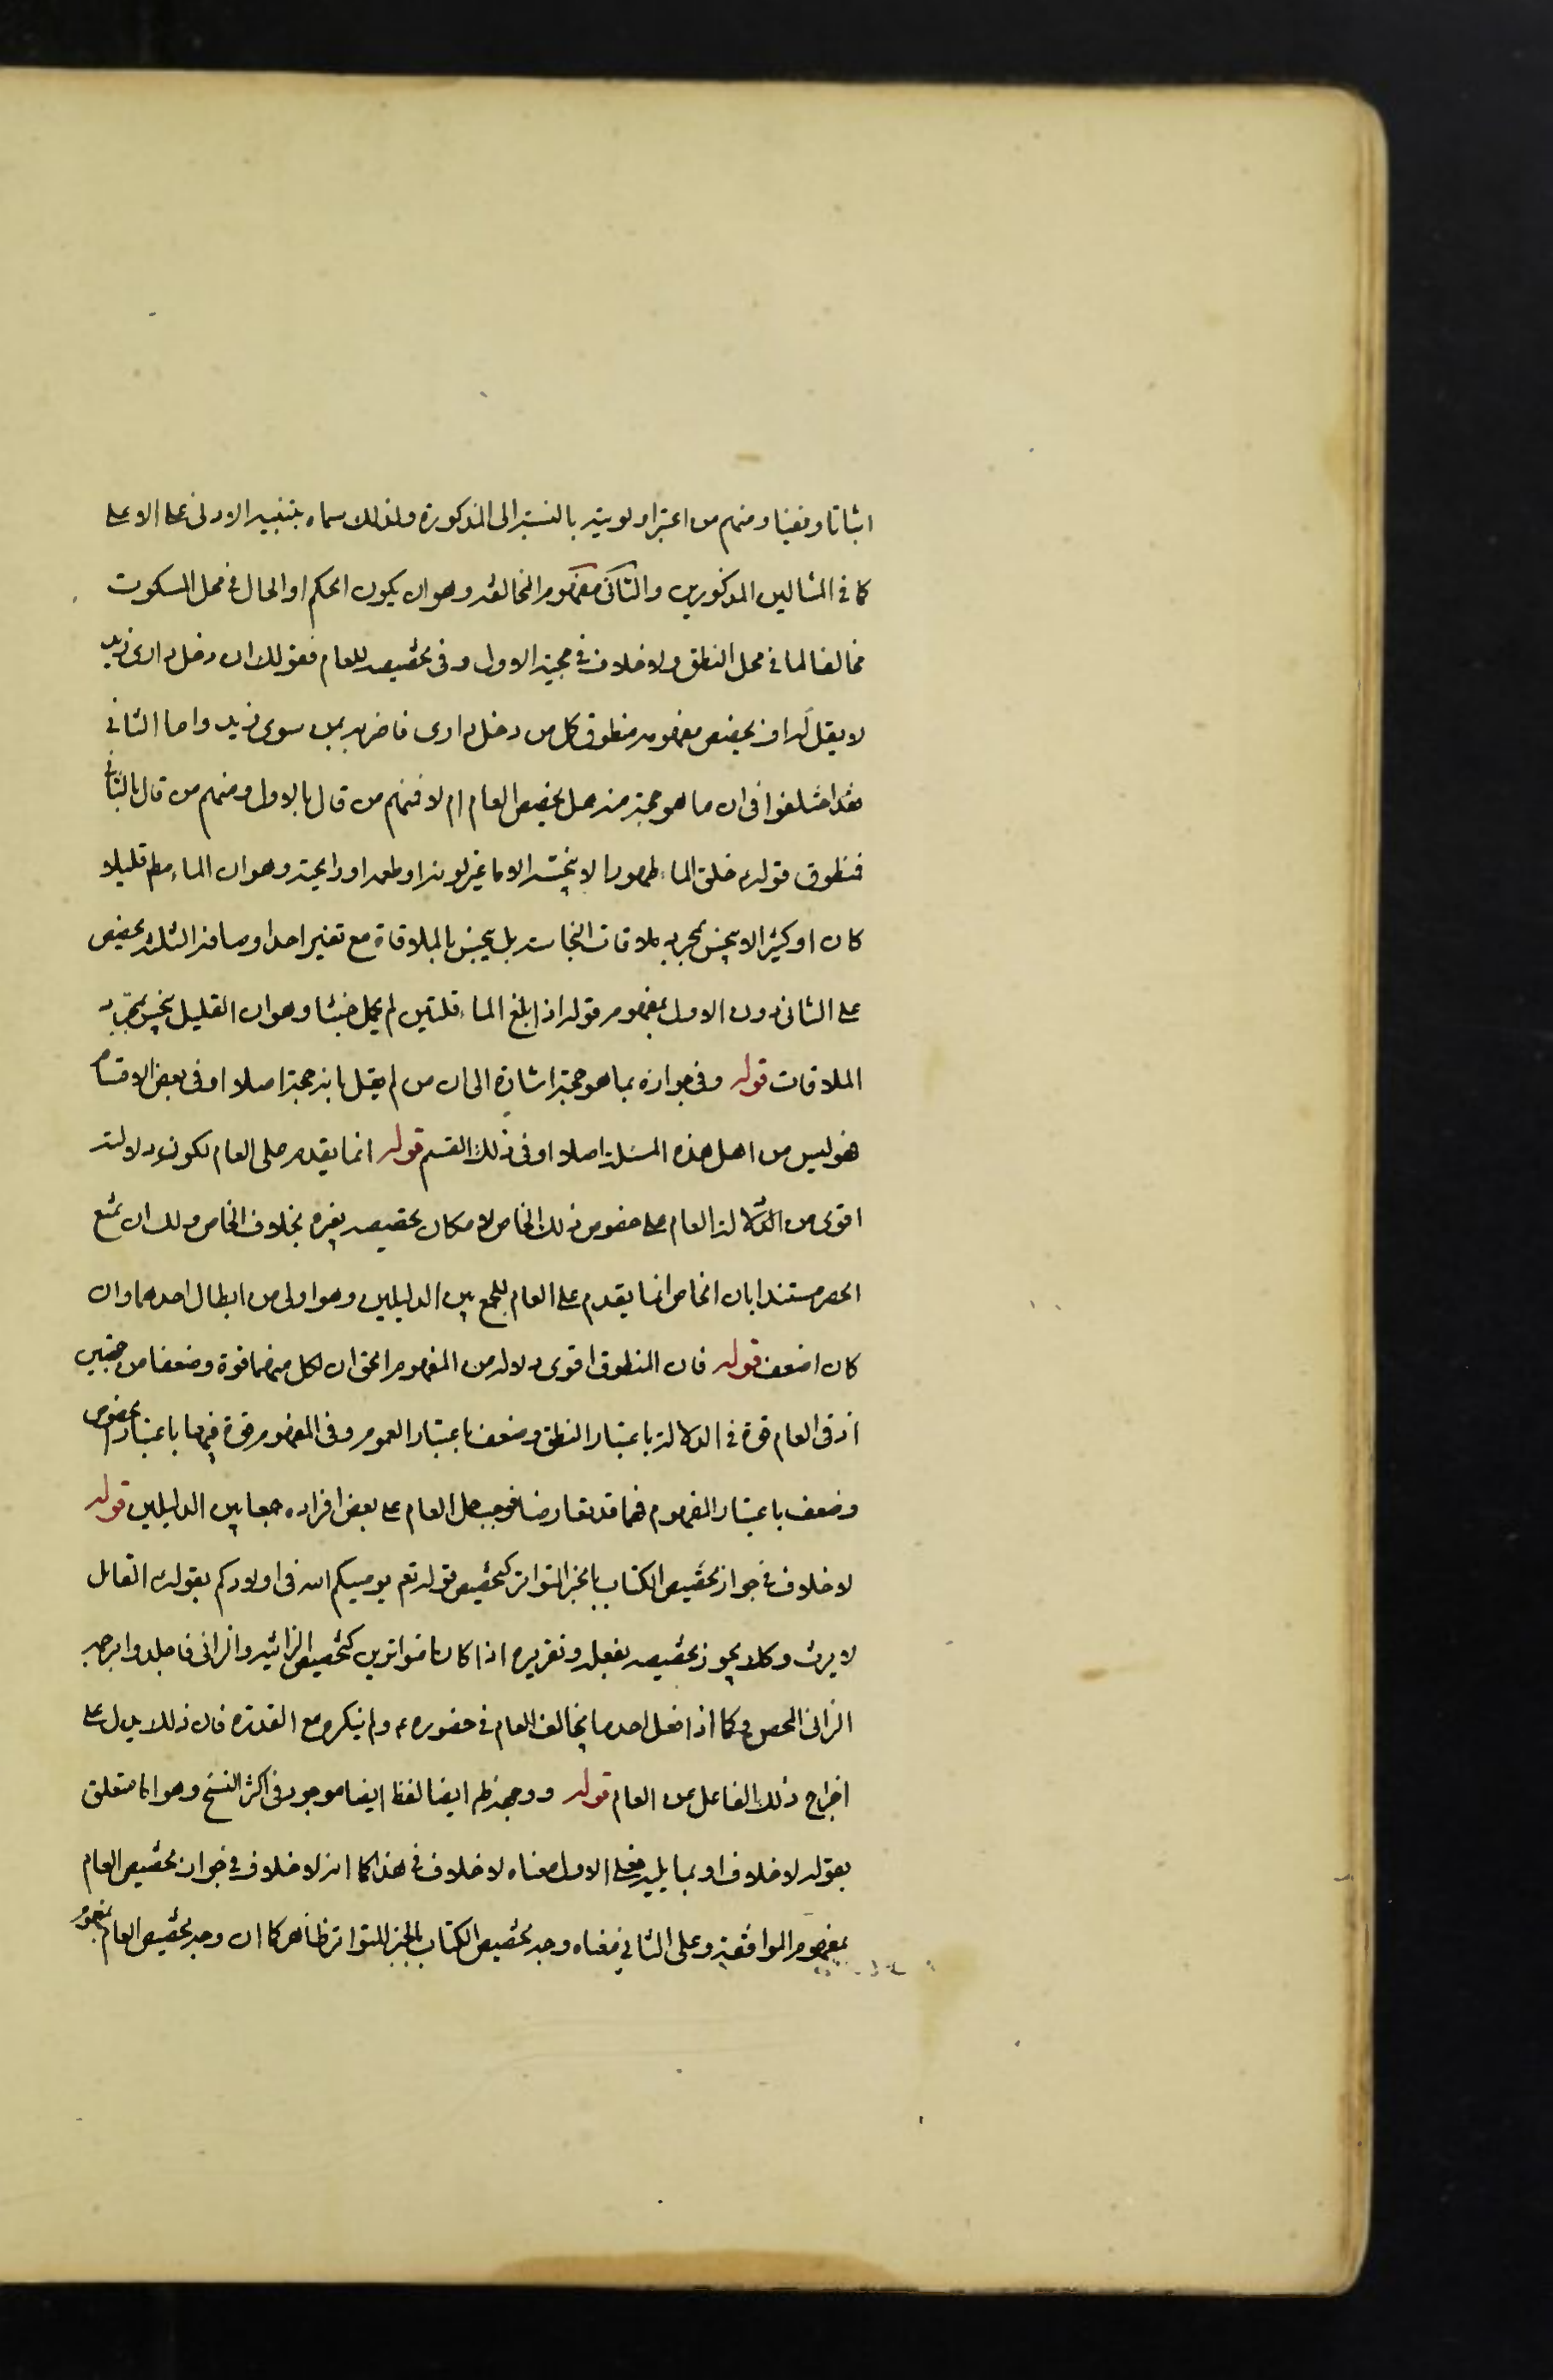 اثباتا ونفيا ومنهم من اعتبر اولويته بالنسبة الى المذكورة ولذلك سماه بتنبيه الادنى على الاعلى
كما في المثالين المذكورين والثاني مفهوم المخالفة وهو ان يكون الحكم او الحال في محل السكوت
مخالفا لما في محل النطق ولا خلاف في حجية الاول وفي تخصيصه للعام فقولك ان دخل داري زيد
لا يقل له اف يخصص مفهومه منطوق كل من دخل داري فاضربه بمن سوى زيد واما الثاني
فقد اختلفوا في ان ما هو حجة منه هل يخصص العام ام لا فمنهم من قال بالاول ومنهم من قال بالثاني
فمنطوق قوله ع خلق الماء طهورا لا ينجسه الا ما غير لونه او طعمه او رايحته وهو ان الماء مط قليلا
كان او كثيرا لا ينجس بمجرد ملاقات النجاسة بل ينجس بالملاقاة مع تغير احد اوصافه الثلثة يخصص
على الثاني دون الاول بمفهوم قوله اذا بلغ الماء قلتين لم يحمل خبثا وهو ان القليل ينجس بمجرد
الملاقات قوله وفي جوازه بما هو حجة اشارة الى ان من لم يقل بانه حجة اصلا او في بعض الاقسام
فهو ليس من اهل هذه المسئلة اصلا او في ذلك القسم قوله انما يقدم على العام لكون دلالته
اقوى من الدلالة العام على خصوص ذلك الخاص لامكان تخصيصه بغيره بخلاف الخاص ولك ان تمنع
الحصر مستندا بان الخاص انما يقدم على العام للجمع بين الدليلين وهو اولى من ابطال احدهما وان
كان اضعف قوله فان المنطوق اقوى دلالة من المفهوم الحق ان لكل منهما قوة وضعفا من جهتين
اذ في العام قوة في الدلالة باعتبار النطق وضعف باعتبار العموم وفي المفهوم قوة فيها باعتبار الخصوص
وضعف باعتبار المفهوم فهما قد تعارضا فوجب حمل العام على بعض افراده جمعا بين الدليلين قوله
لا خلاف في جواز تخصيص الكتاب بالخبر المتواتر كتخصيص قوله تع يوصيكم الله في اولادكم بقوله ع القاتل
لا يرث وكذا يجوز تخصيصه بفعله وتقريره اذا كانا متواترين كتخصيص الزانية والزاني فاجلدوا برجمه
الزاني المحصن وكما اذا فعل احد ما يخالف العام في حضوره ع ولم ينكره مع القدرة فان ذلك يدل على
اخراج ذلك الفاعل من العام قوله ووجهه ظم ايضا لفظ ايضا موجود في اكثر النسخ وهو اما متعلق
بقوله لا خلاف او بما يليه فعلى الاول معناه لا خلاف في هذا كما انه لا خلاف في جواز تخصيص العام
بمفهوم الموافقة وعلى الثاني فمعناه وجه تخصيص الكتاب بالخبر المتواتر ظاهر كما ان وجه تخصيص العام بمفهوم